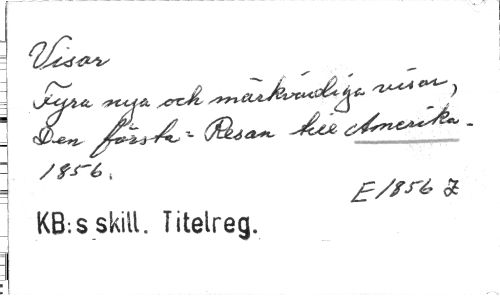 Visor
Fyra nya och märkvärdiga visor,
Den första = Resan till Amerika.
1856.
E 1856 Z
KB:s skill. Titelreg.